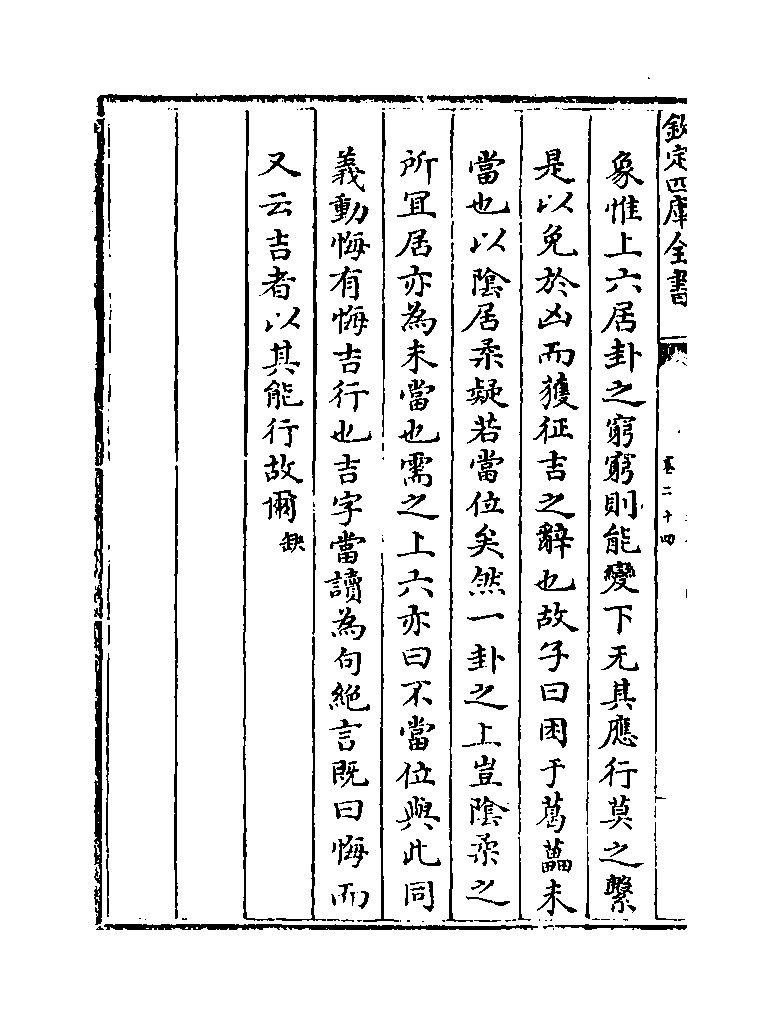 欽定四庫全書
卷二十四
象惟上六居卦之窮窮則能變下无其應行莫之繫
是以免於凶而獲征吉之辭也故子曰困于葛藟未
當也以陰居柔疑若當位矣然一卦之上豈陰柔之
所宜居亦為未當也需之上六亦曰不當位與此同
義動悔有悔吉行也吉字當讀為句絶言既曰悔而
又云吉者以其能行故爾缺